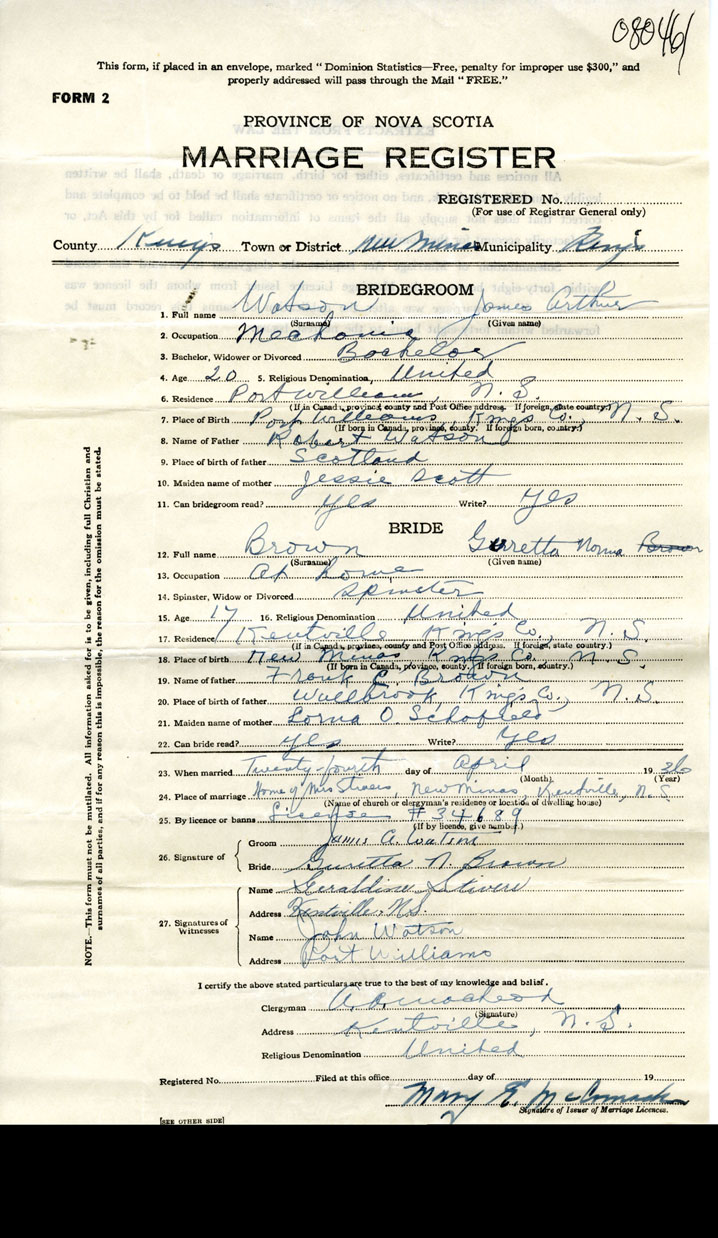 080461
This form, if placed in an envelope, marked "Dominion Statistics—Free, penalty for improper use $300," and
properly addressed will pass through the Mail "FREE."
FORM 2
PROVINCE OF NOVA SCOTIA
MARRIAGE REGISTER
REGISTERED No.
(For use of Registrar General only)
County Kings Town or District New Minas Municipality Kings
BRIDEGROOM
1. Full name Watson James Arthur
(Surname) (Given name)
2. Occupation Mechanic
3. Bachelor, Widower or Divorced Bachelor
4. Age 20 5. Religious Denomination, United
6. Residence Port Williams, N.S.
(If in Canada, province, county and Post Office address. If foreign, state country.)
7. Place of Birth Port Williams Kings Co., N.S.
(If born in Canada, province, county. If foreign born, country.)
8. Name of Father Robert Watson
9. Place of birth of father Scotland
10. Maiden name of mother Jessie Scott
11. Can bridegroom read? Yes Write? Yes
BRIDE
12. Full name Brown Gurretta Norma Brown
(Surname) (Given name)
13. Occupation at home
14. Spinster, Widow or Divorced Spinster
15. Age 17 16. Religious Denomination United
17. Residence Kentville Kings Co., N.S.
(If in Canada, province, county and Post Office address. If foreign, state country.)
18. Place of birth New Minas Kings Co., N.S.
(If born in Canada, province, county. If foreign born, country.)
19. Name of father Frank C. Brown
20. Place of birth of father Wallbrook, Kings Co., N.S.
21. Maiden name of mother Lorna O. Schofield
22. Can bride read? Yes Write? Yes
23. When married Twenty-fourth day of April 19 36
(Month) (Year)
24. Place of marriage Home of Mrs Stivers, New Minas, Kentville, N.S.
(Name of church or clergyman's residence or location of dwelling house)
25. By licence or banns License #34689
(If by licence, give number.)
26. Signature of Groom James A. Watson
Bride Guretta N. Brown
27. Signatures of Witnesses
Name Geraldine Stivers
Address Kentville, N.S.
Name John Watson
Address Port Williams
I certify the above stated particulars are true to the best of my knowledge and belief.
Clergyman
(Signature)
Address Kentville, N.S.
Religious Denomination United
Registered No. Filed at this office day of 19
Mary E. McCormack
Signature of Issuer of Marriage Licences.
[SEE OTHER SIDE]
NOTE.—This form must not be mutilated. All information asked for is to be given, including full Christian and
surnames of all parties, and if for any reason this is impossible, the reason for the omission must be stated.